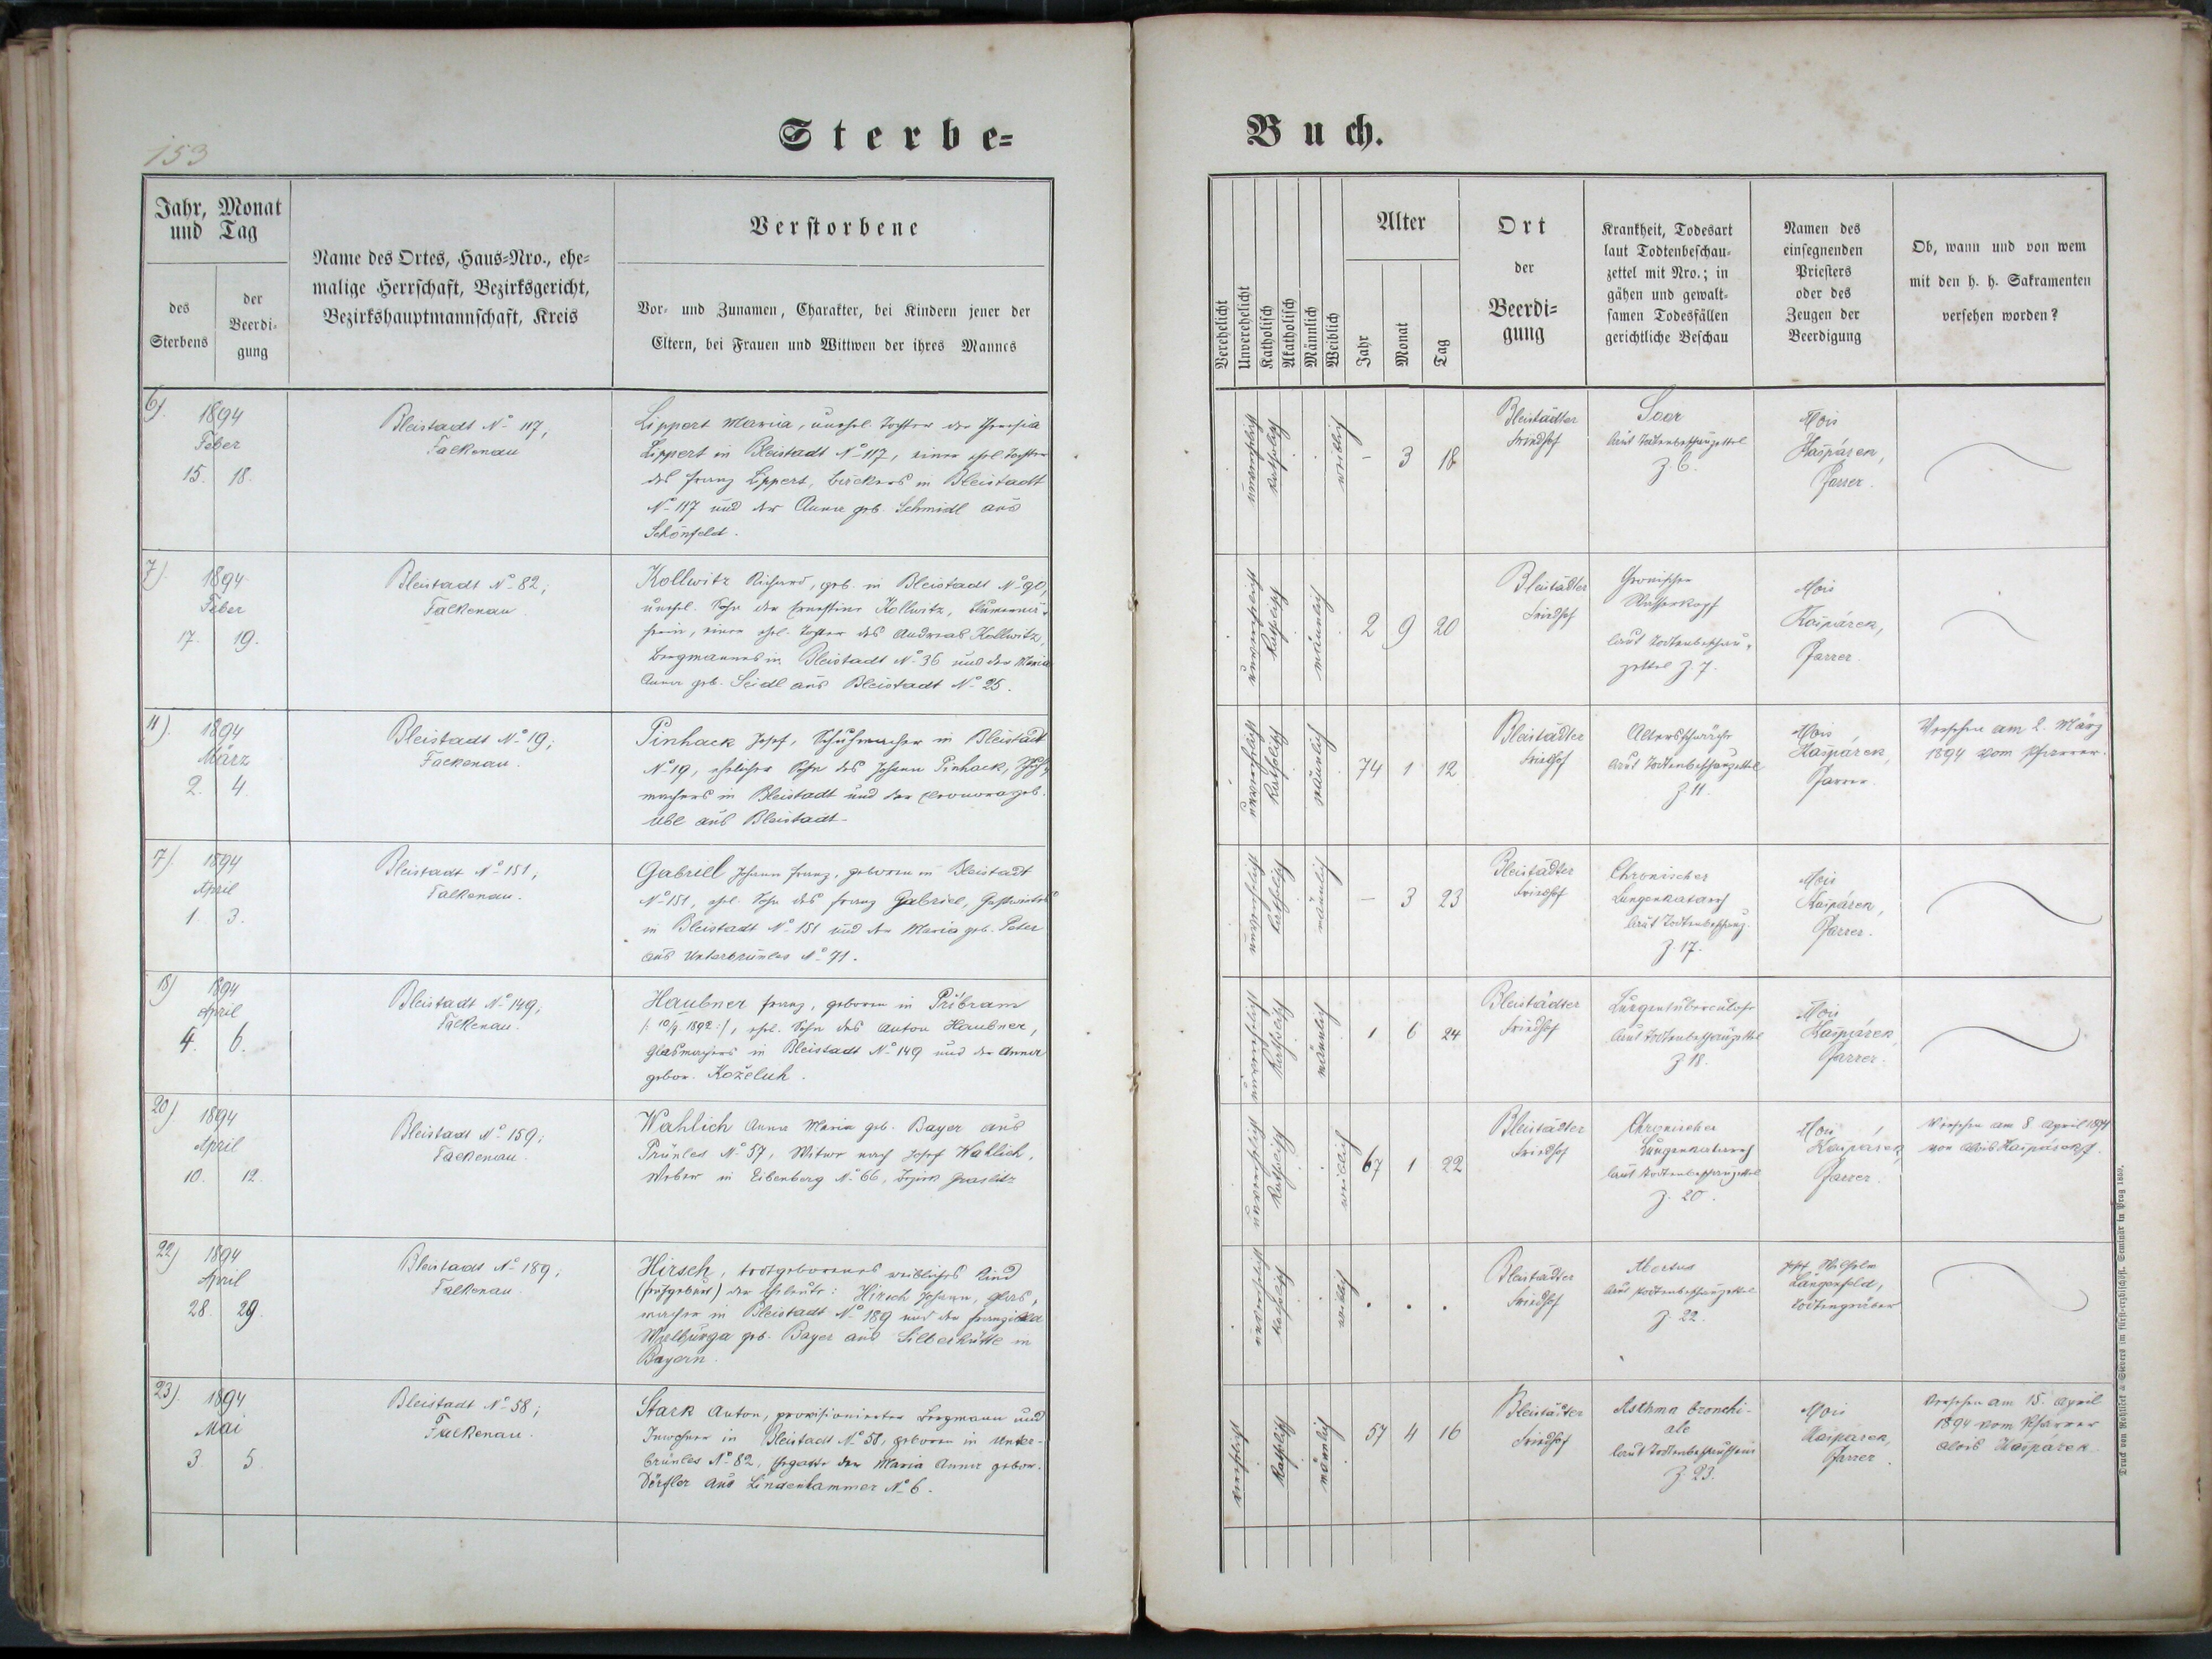 153
Sterbe-
Buch.
Jahr, Monat
und Tag
des
Sterbens
der
Beerdi-
gung
Name des Ortes, Haus-Nro., ehe-
malige Herrschaft, Bezirksgericht,
Bezirkshauptmannschaft, Kreis
Verstorbene
Vor- und Zunamen, Charakter, bei Kindern jener der
Eltern, bei Frauen und Wittwen der ihres Mannes
Verehelicht
Unverehelicht
Katholisch
Akatholisch
Männlich
Weiblich
Alter
Jahr
Monat
Tag
Ort
der
Beerdi-
gung
Krankheit, Todesart
laut Todtenbeschau-
zettel mit Nro.; in
gähen und gewalt-
samen Todesfällen
gerichtliche Beschau
Namen des
einsegnenden
Priesters
oder des
Zeugen der
Beerdigung
Ob, wann und von wem
mit den h. h. Sakramenten
versehen worden?
6).
1894
Feber
15. 18.
Bleistadt No 117,
Falkenau
Lippert Maria, unehel. Tochter der Theresia
Lippert in Bleistadt No 117, einer ehel. Tochter
des Franz Lippert, Bäckers in Bleistadt
No 117 und der Anna geb. Schmidl aus
Schönfeld.
unverehelicht
katholisch
weiblich
- 3 18
Bleistädter
Friedhof
laut Todtenbeschauzettel
Z 6.
Alois
Kašpárek,
Pfarrer.
7).
1894
Feber
17. 19.
Bleistadt No 82;
Falkenau
Kollwitz Richard, geb. in Bleistadt No 90,
unehel. Sohn der Ernestine Kollwitz,
einer ehel. Tochter des Andreas Kollwitz,
Bergmannes in Bleistadt No 36 und der Maria
Anna geb. Seidl aus Bleistadt No 25.
unverehelicht
katholisch
männlich
2 9 20
Bleistädter
Friedhof
Chronischer
Wasserkopf
laut Todtenbeschau-
zettel Z. 7.
Alois
Kašpárek,
Pfarrer
11).
1894
März
2. 4.
Bleistadt No 19;
Falkenau.
Pinhack Josef, Schuhmacher in Bleistadt
No 19, ehelicher Sohn des Johann Pinhack, Schuh-
machers in Bleistadt und der Eleonora geb.
Übl aus Bleistadt.
unverehelicht
katholisch
männlich
74 1 12
Bleistädter
Friedhof
Altersschwäche
laut Todtenbeschauzettel
Z 11.
Alois
Kašpárek,
Pfarrer.
Versehen am 2. März
1894 vom Pfarrer.
17).
1894
April
1. 3.
Bleistadt No 151,
Falkenau.
Gabriel Johann Franz, geboren in Bleistadt
No 151, ehel. Sohn des Franz Gabriel, Gastwirtes
in Bleistadt No 151 und der Maria geb. Peter
aus Unterbrünles No 71.
unverehelicht
katholisch
männlich
- 3 23
Bleistädter
Friedhof
Chronischer
Lungenkatarrh
laut Todtenbeschauz.
Z 17.
Alois
Kašpárek,
Pfarrer.
18)
1894
April
4. 6.
Bleistadt No 149;
Falkenau.
Haubner Franz, geboren in Přibram
/: 10/9 1892 :/, ehel. Sohn des Anton Haubner,
Glasmachers in Bleistadt No 149 und der Anna
gebor. Koželuh.
unverehelicht
katholisch
männlich
1 6 24
Bleistädter
Friedhof
Lungentuberculose
laut Todtenbeschauzettel
Z 18.
Alois
Kašpárek,
Pfarrer.
20)
1894
April
10. 12.
Bleistadt No 159;
Falkenau.
Wahlich Anna Maria geb. Bayer aus
Prünles No 57, Witwe nach Josef Wahlich,
Weber in Eibenberg No 66, Bezirk Graslitz
katholisch
weiblich
67 1 22
Bleistädter
Friedhof
Chronischer
Lungenkatarrh
laut Todtenbeschauzettel
Z. 20.
Alois
Kašpárek,
Pfarrer.
Versehen am 8 April 1894
von Alois Kašpárek
22)
1894
April
28. 29.
Bleistadt No 189;
Falkenau
Hirsch, todtgeborenes weibliches Kind
(Frühgeburt) der Eheleute: Hirsch Johann, Glas-
macher in Bleistadt No 189 und der Franziska
Walburga geb. Bayer aus Silberhütte in
Bayern.
unverehelicht
katholisch
weiblich
. . .
Bleistädter
Friedhof
Abortus
laut Todtenbeschauzettel
Z. 22.
Josef Wilhelm
Langenfeld,
Todtengräber
23).
1894
Mai
3 5.
Bleistadt No 58;
Falkenau.
Stark Anton, provisionirter Bergmann und
Inwohner in Bleistadt No 58, geboren in Unter-
brünles No 82, Ehegatte der Maria Anna gebor.
Dörfler aus Lindenhammer No 6.
verehelicht
katholisch
männlich
57 4 16
Bleistädter
Friedhof
Asthma bronchi-
ale
laut Todtenbeschauschein
Z. 23.
Alois
Kašpárek,
Pfarrer.
Versehen am 15. April
1894 vom Pfarrer
Alois Kašpárek
Druck von Rohliček & Sievers im fürst-erzbischöfl. Seminär in Prag 1869.